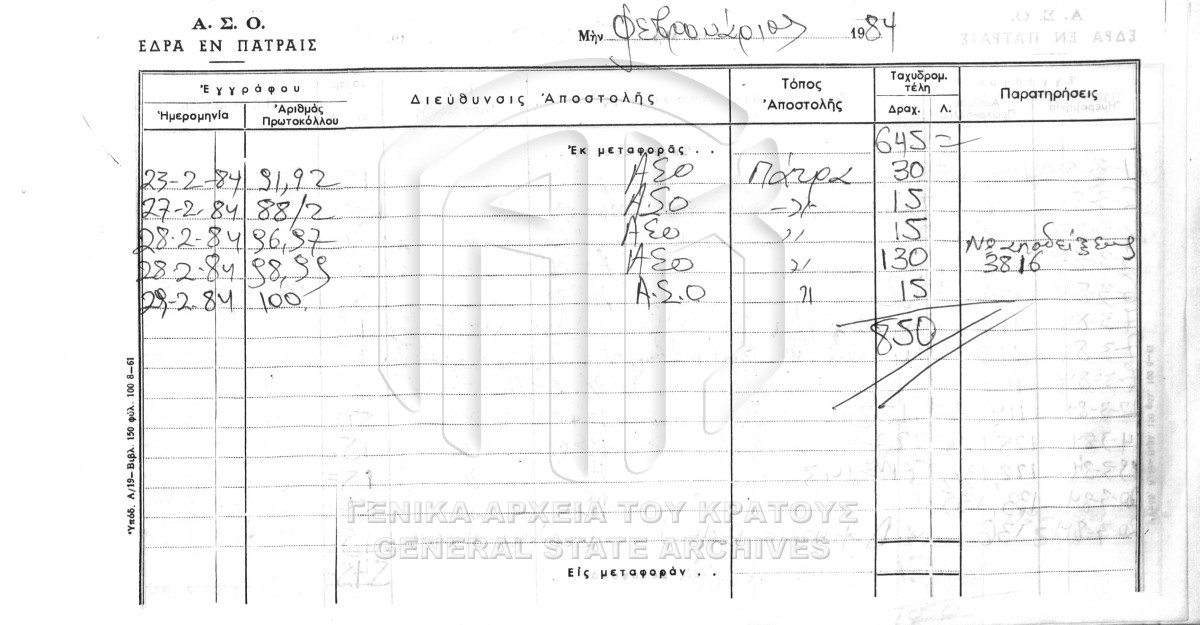 Α. Σ. Ο.
ΕΔΡΑ ΕΝ ΠΑΤΡΑΙΣ
Μὴν Φεβρουάριος 1984
Ἐγγράφου Διεύθυνσις Ἀποστολῆς Τόπος Ἀποστολῆς Ταχυδρομ. τέλη Παρατηρήσεις
Ἡμερομηνία Ἀριθμὸς Πρωτοκόλλου Δραχ. Λ.
Ἐκ μεταφορᾶς . . 645 =
23-2-84 91,92 ΑΣΟ Πάτρα 30
27-2-84 88/2 Α.S.O -〃- 15
28-2-84 96,97 ΑΣΟ 〃 15
28-2-84 98,99 ΑΣΟ 〃 130 Νο αποδείξεως 3816
29-2-84 100 Α.S.O 〃 15
850
Ὑπόδ. Α/19—Βιβλ. 150 φύλ. 100 8—61
ΓΕΝΙΚΑ ΑΡΧΕΙΑ ΤΟΥ ΚΡΑΤΟΥΣ
GENERAL STATE ARCHIVES
Εἰς μεταφοράν . .